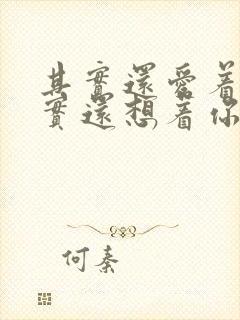 其實還愛着
實還想着你
何秦